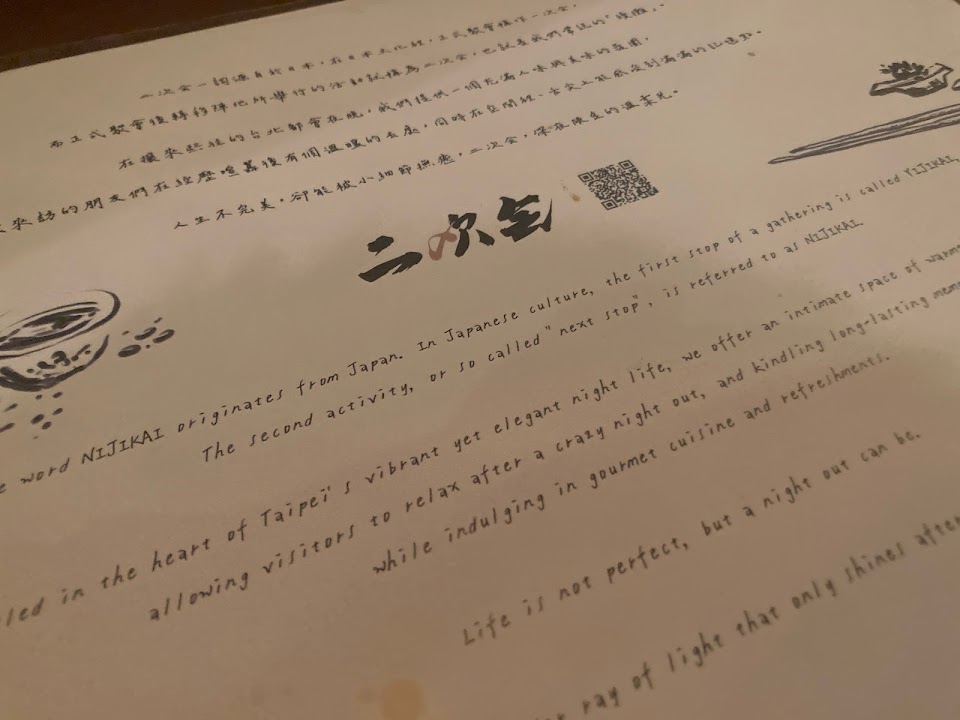 二次会一詞源自於日本，在日本文化裡，正式聚會稱作一次会，
而正式聚會後轉移陣地所舉行的活動就稱為二次会，也就是我們常說的「續攤」。
在攘來熙往的台北都會夜晚，我們提供一個充滿人味與美味的氛圍，
來訪的朋友們在經歷喧囂後有個溫暖的去處，同時在空間裡、舌尖上
人生不完美，卻能被小細節撫癒，二次会，深夜限定的溫柔光。
二次会
word NIJIKAI originates from Japan. In Japanese culture, the first stop of a gathering is called YIJIKAI,
The second activity, or so called "next stop", is referred to as NIJIKAI.
in the heart of Taipei's vibrant yet elegant night life, we offer an intimate space of
allowing visitors to relax after a crazy night out, and kindling long-lasting
while indulging in gourmet cuisine and refreshments.
Life is not perfect, but a night out can be.
ray of light that only shines after